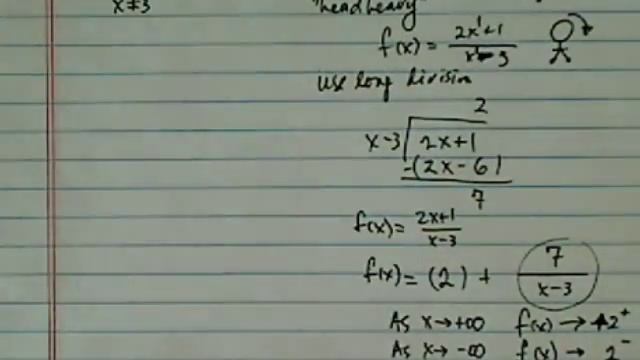 x≠3
"headheavy"
f(x) = 2x¹+1 / x¹-3
use long division
2
x-3 2x+1
-(2x-6)
7
f(x) = 2x+1 / x-3
f(x) = (2) + 7 / x-3
As x→+∞ f(x) → 2⁺
As x→-∞ f(x) → 2⁻